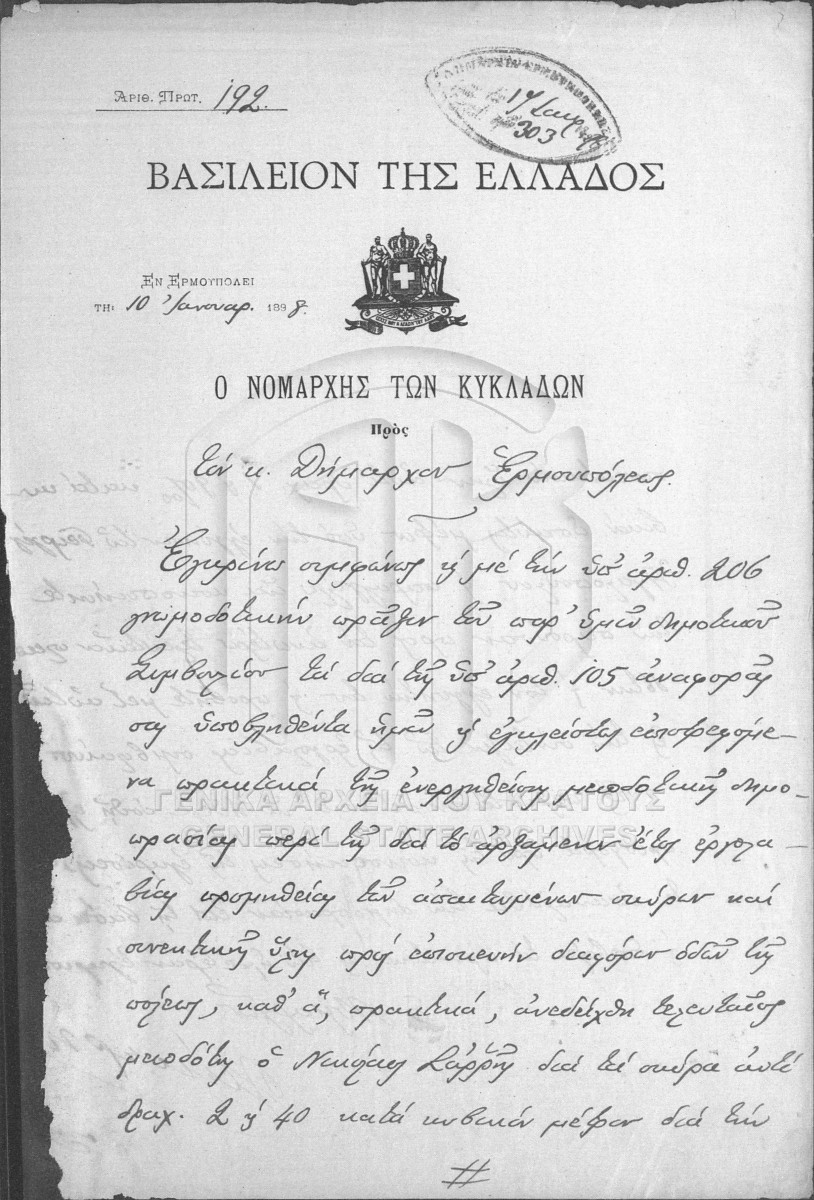 ΑΡΙΘ. ΠΡΩΤ. 192.
17 Ιανρ 98
303
ΒΑΣΙΛΕΙΟΝ ΤΗΣ ΕΛΛΑΔΟΣ
ΕΝ ΕΡΜΟΥΠΟΛΕΙ
ΤΗι 10 Ἰανουαρ. 1898.
Ο ΝΟΜΑΡΧΗΣ ΤΩΝ ΚΥΚΛΑΔΩΝ
Πρὸς
τὸν κ. Δήμαρχον Ἑρμουπόλεως.
Ἐγκρίνω συμφώνως μὲ τὴν ὑπ' ἀριθ. 206
γνωμοδοτικὴν πρᾶξιν τοῦ παρ' ὑμῖν δημοτικοῦ
Συμβουλίου τὰ διὰ τῆς ὑπ' ἀριθ. 105 ἀναφορᾶς
σας ὑποβληθέντα ἡμῖν ἐγκλείστως ἐπιστρεφόμε-
να πρακτικὰ τῆς ἐνεργηθείσης μειοδοτικῆς δημο-
πρασίας περὶ τῆς διὰ τὸ ἀρξάμενον ἔτος ἐργολα-
βίας προμηθείας τῶν ἀπαιτουμένων σκύρων καὶ
συνεκτικῆς ὕλης πρὸς ἐπισκευὴν διαφόρων ὁδῶν τῆς
πόλεως, καθ' ἅ, πρακτικά, ἀνεδείχθη τελευταῖος
μειοδότης ὁ Νικόλαος Σαρρῆς διὰ τὰ σκύρα ἀντὶ
δραχ. 2 40 κατὰ κυβικὸν μέτρον διὰ τὴν
//
ΓΕΝΙΚΑ ΑΡΧΕΙΑ ΤΟΥ ΚΡΑΤΟΥΣ
GENERAL STATE ARCHIVES